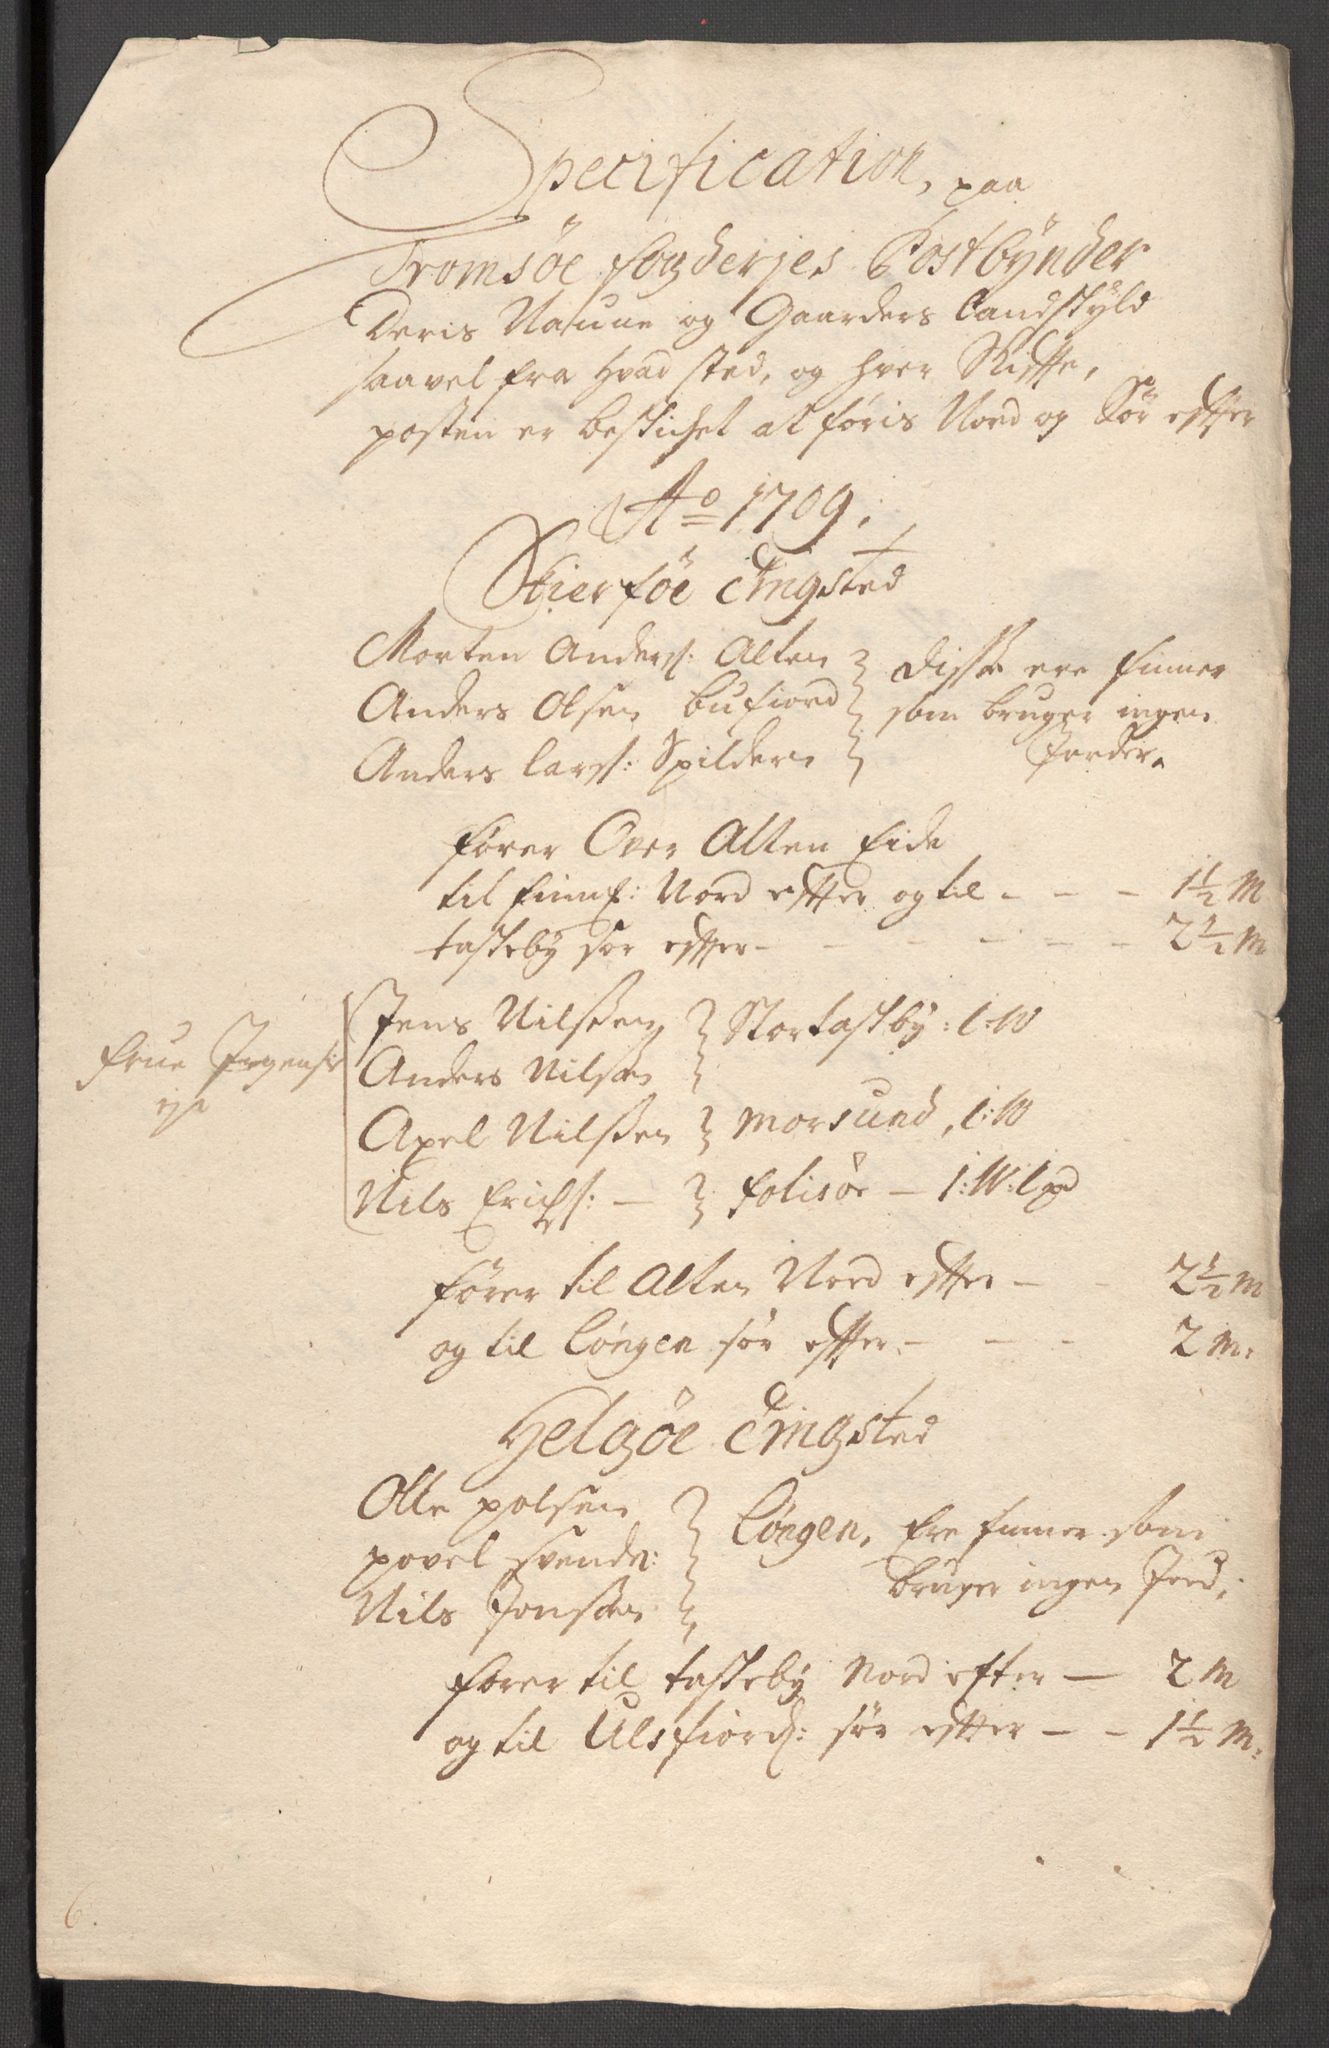 Specification, paa
Tromsøe fogderjes Postbÿnder
Deris Naune og Gaarders Landskÿld
saavel fra hvad sted, og hver Skiffte,
posten er beskichet at føris Nord og Sør effter
Ao 1709.
Skierføe Tingsted
Morten Anderss: Alten } disse ere finner
Anders Olsen bufiord } som bruger ingen
Anders Larss: Spildern } Jorder.
fører Over Alten Eide
til finm: Nord effter og til - - - 1½ M
taskeby sør effter - - - - - - 2½ M
Jens Nilssen } Stortaskby: 1: W
frue Jrgensis Anders Nilsen
eje
Axel Nilssen } Morsund, 1: W
Nils Erichs: - } folisøe - 1: W: 1 pd
fører til Alten Nord effter - - 2½ M
og til Løngen sør effter - - - 2 M:
Helgøe Tingsted
Olle polsen } Løngen, Ere finner som
povel svends: } bruger ingen Jord.
Nils Jonssen }
fører til taskeby Nord efter - 2 M
og til Ulsfiord: sør effter - - 1½ M:
6.